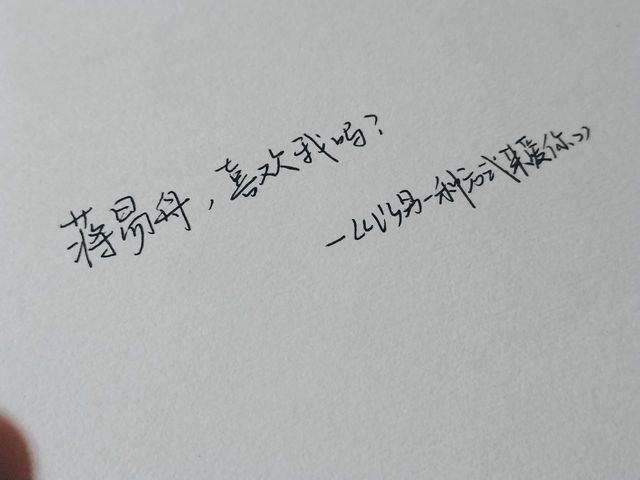 蒋易舟，喜欢我吗？
—《以另一种方式来爱你》